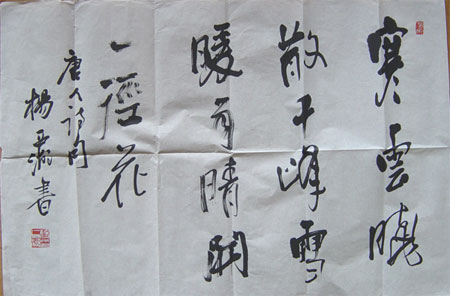 寒雲曉
散千峰雪
暖雨晴開
一徑花
唐人詩句
楊書